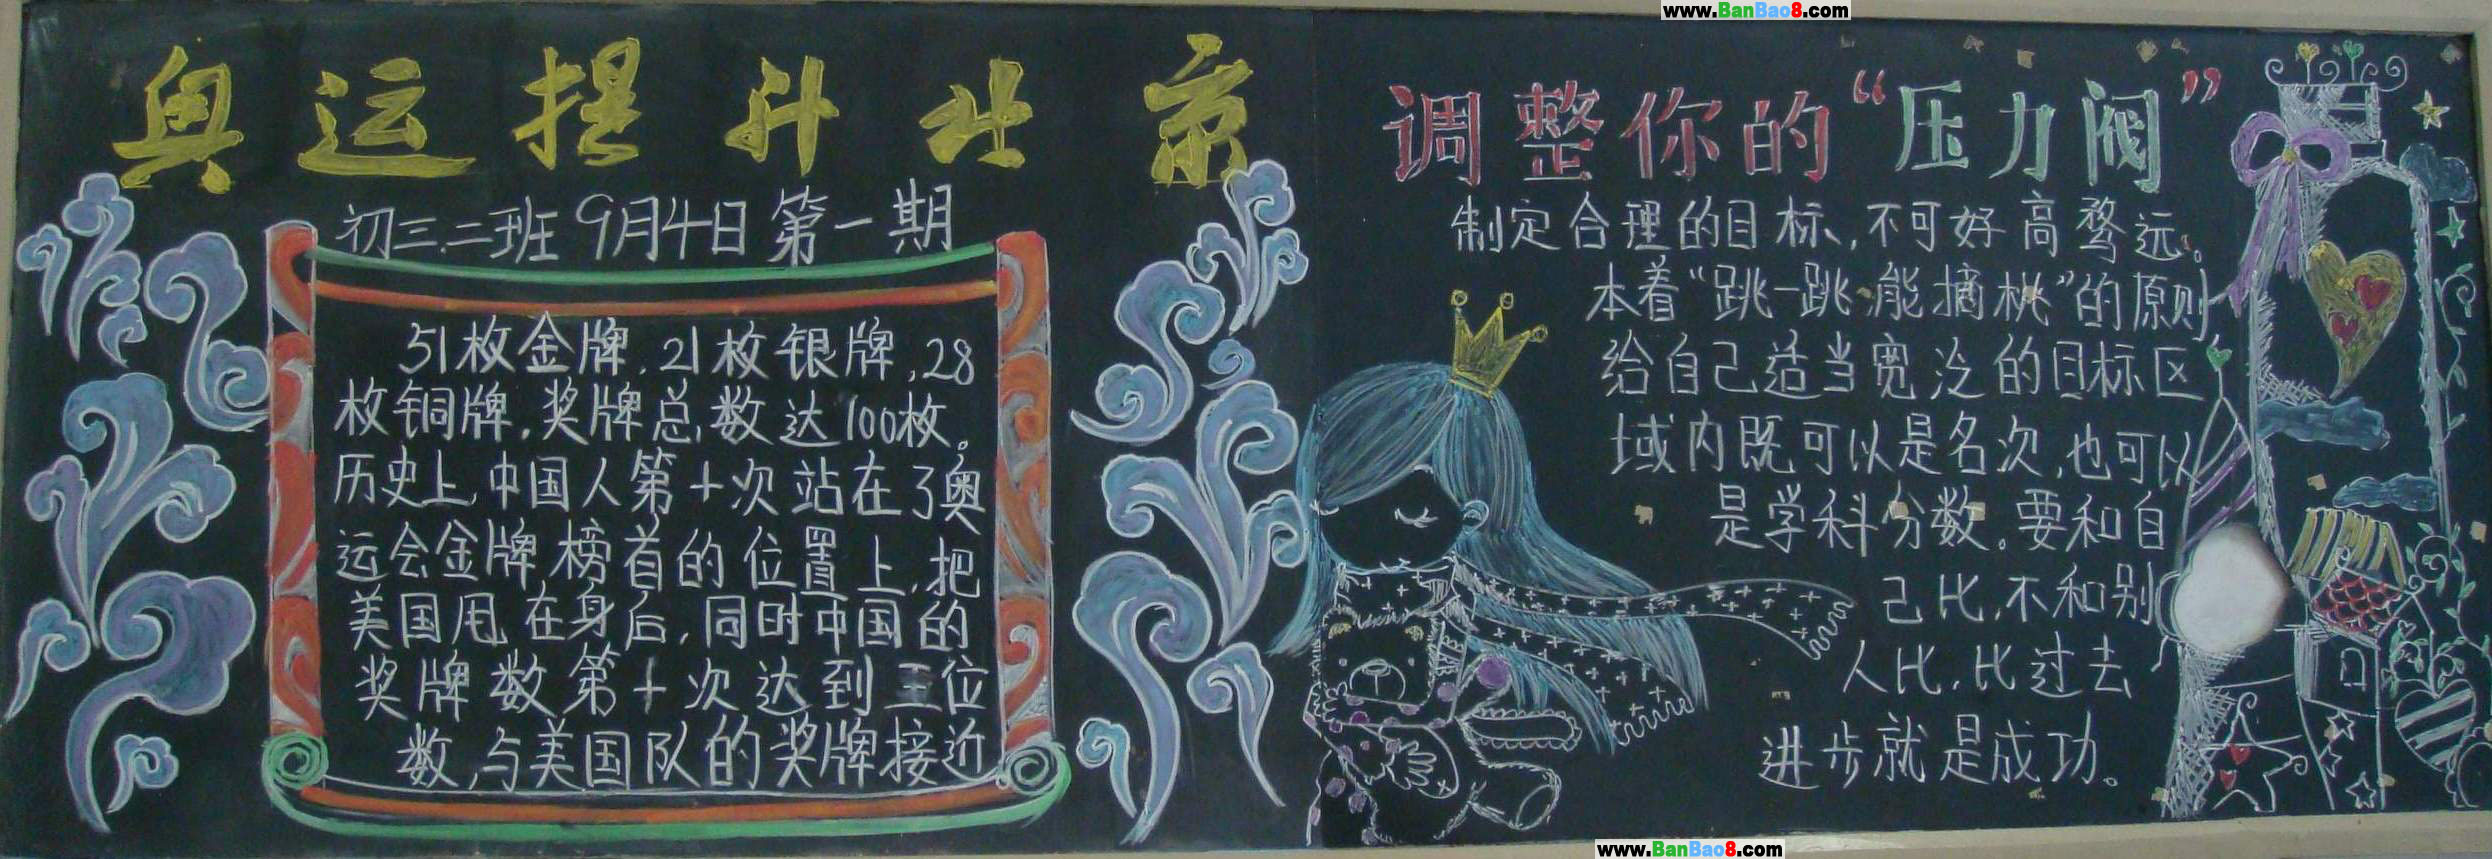 www.BanBao8.com
奥运提升北京
初三.二班 9月4日 第一期
51枚金牌,21枚银牌,28
枚铜牌,奖牌总数达100枚。
历史上,中国人第十次站在了奥
运会金牌榜首的位置上,把
美国甩在身后,同时中国的
奖牌数第十次达到三位
数,与美国队的奖牌接近
调整你的“压力阀”
制定合理的目标,不可好高骛远。
本着“跳一跳,能摘桃”的原则,
给自己适当宽泛的目标区
域内既可以是名次,也可以
是学科分数。要和自
己比,不和别
人比,比过去
进步就是成功。
www.BanBao8.com